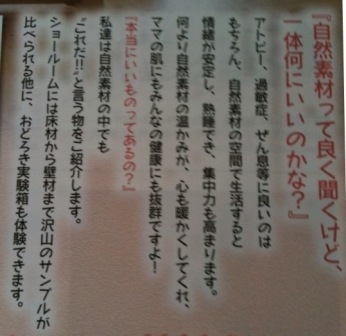 『自然素材って良く聞くけど、
一体何にいいのかな？』
アトピー、過敏症、ぜん息等に良いのは
もちろん、自然素材の空間で生活すると
情緒が安定し、熟睡でき、集中力も高まります。
何より自然素材の温かみが、心も暖かくしてくれ、
ママの肌にもみんなの健康にも抜群ですよ！
『本当にいいものってあるの？』
私達は自然素材の中でも
"これだ!!"と言う物をご紹介します。
ショールームには床材から壁材まで沢山のサンプルが
比べられる他に、おどろき実験箱も体験できます。